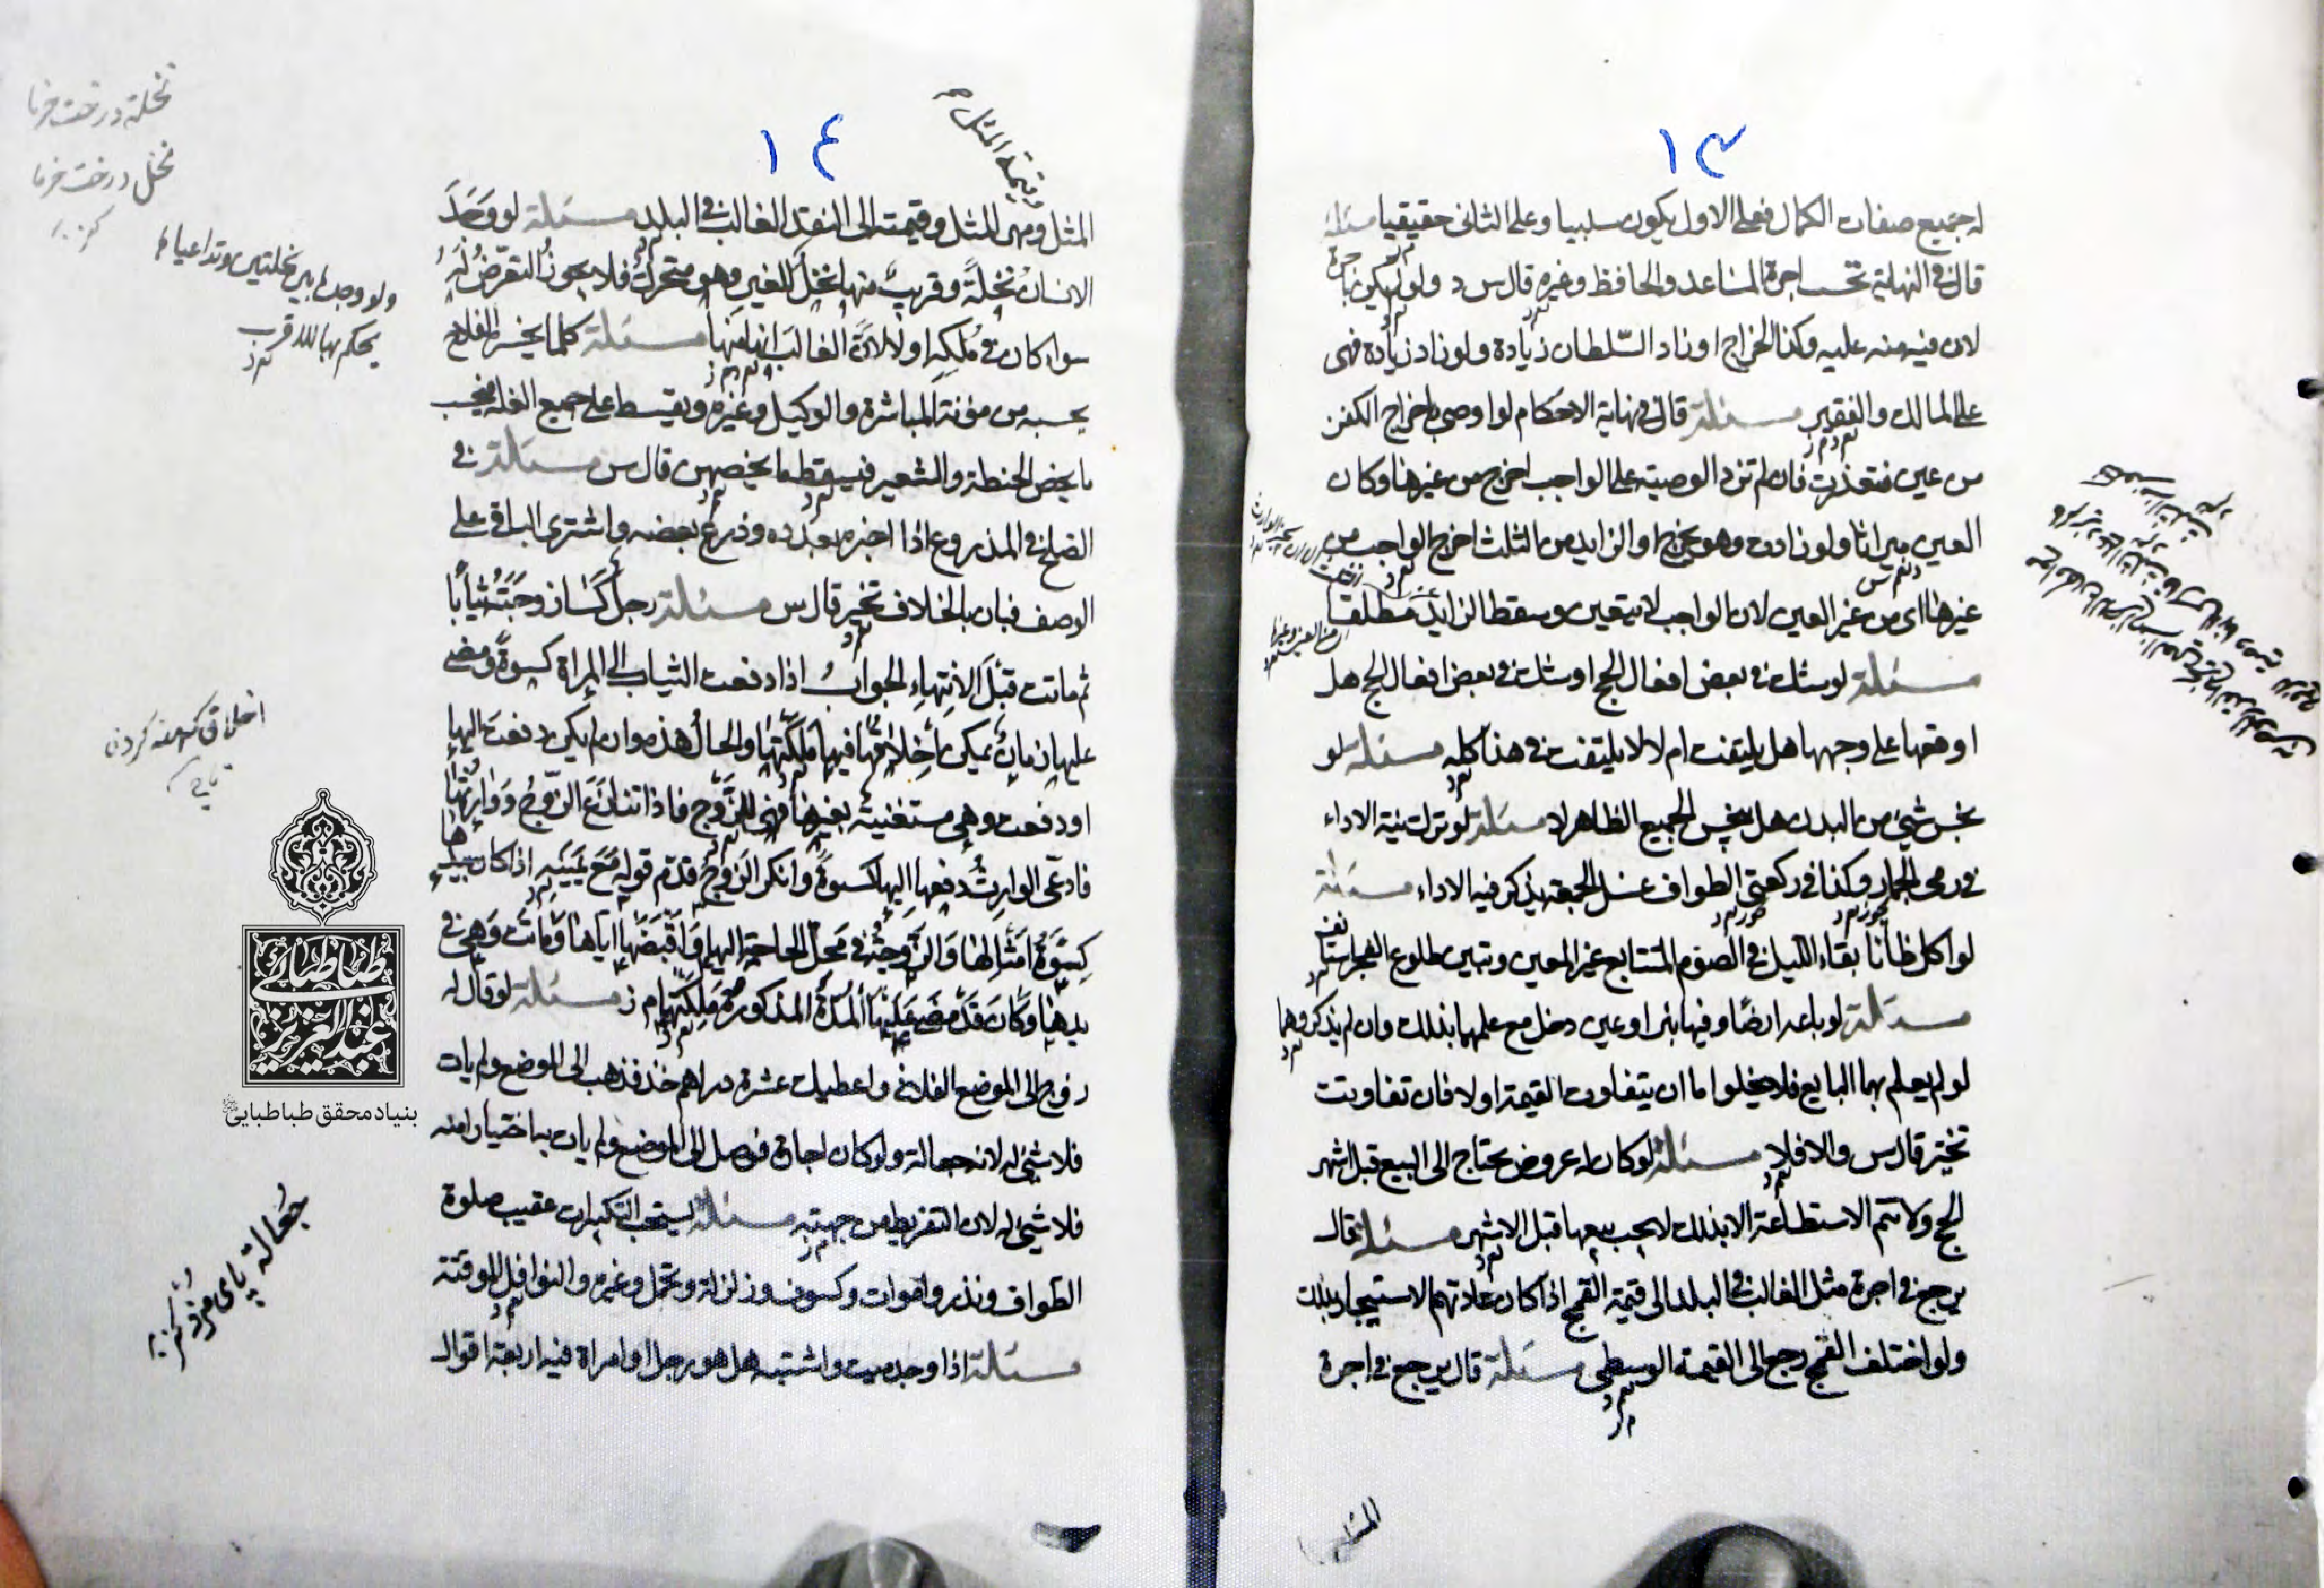 ١٣
له جميع صفات الكمال فعلى الاول يكون سلبيا وعلى الثانى حقيقيا مسئلة
قال فى النهاية تحسب اجرة المساعد والحافظ وغيره قال س د ولو لم يكن باجرة
لان فيه منه عليه وكذا الخراج او زاد السّلطان زيادة ولو زاد زيادة فهى
على المالك والفقير مسئلة قال فى نهاية الاحكام لو اوصى باخراج الكفن
من عين فتعذرت فان لم تزد الوصية على الواجب اخرج من غيرها وكان
العين ميراثا ولو زادت وهو يخرج او الزايد من الثلث اخرج الواجب من
غيرها اى من غير العين لان الواجب لا يتعين وسقط الزايد مطلقا
مسئلة لو شك فى بعض افعال الحج او شك فى بعض افعال الحج هل
اوقعها على وجهها هل يلتفت ام لا لا يلتفت فى هذا كله مسئلة لو
نجس شئ من البدن هل ينجس الجميع الظاهر لا مسئلة لو ترك نية الاداء
فى رمى الجمار وكذا فى ركعتى الطواف غسل الجمعة يذكر فيه الاداء مسئلة
لو اكل ظانا بقاء الليل فى الصوم المتتابع غير المعين وتبين طلوع الفجر استانف
مسئلة لو باعه ارضا وفيها بئر او عين دخل مع علمهما بذلك وان لم يذكروهما
لو لم يعلم بهما البايع فلا يخلوا اما ان يتفاوت القيمة او لا فان تفاوتت
تخير قال س والا فلا مسئلة لو كان له عروض يحتاج الى البيع قبل اشهر
الحج ولا تتم الاستطاعة الا بذلك لا يجب بيعها قبل الاشهر مسئلة قال
يرجع فى اجرة مثل الغالب فى البلد الى قيمة القمح اذا كان عادتهم الاستيجار بذلك
ولو اختلف القمح رجع الى القيمة الوسطى مسئلة قال يرجع فى اجرة
المثل
١٤
وقيمة المثل
المثل ومهر المثل وقيمته الى النقد الغالب فى البلد مسئلة لو وَجَدَ
الانسان نَخلَةً وقريبٌ منها نخل للغير وهو متحرك فلا يجوز التعرّض له
سواء كان فى مُلكِه او لا لانّ الغالب انها منها مسئلة كلما يخسر الفلاح
يحسبه من مؤنة المباشرة والوكيل وغيره ويقسط على جميع الغلة فيجب
ما يخص الحنطة والشعير فيسقط ما يخصهن قال س مسئلة فى
الصلح فى المذروع اذا اخبره بعدده وذرع بعضه واشترى الباقى على
الوصف فبان بالخلاف تخير قال س مسئلة رجل كَسَا زوجَتَهُ ثيابًا
ثم ماتت قبل الانتهاء الجوابُ اذا دفعت الثياب الى المراة كسوةً ومضى
عليها زمانٌ يمكن اخلاقها فيها مَلِكَتها والحالُ هذه وان لم يكن دفعت اليها
او دفعت وهى مستغنية بغيرها فهى للزّوج فاذا تنازَعَ الزّوجُ ووارثها
فادعى الوارث دفعها اليها كسوةً وانكر الزوج قدّم قوله مَعَ يمينه اذا كان بيدها
كسوَة امثالها والزّوجَة فى محلّ الحاجة اليها واقبضها اياها وماتت وهى فى
يدها وكان قد مضى عليها المدة المذكورة ملكتها م ز مسئلة لو قال له
روح الى الموضع الفلانى واعطيك عشرة دراهم خذ فذهب الى الموضع ولم يات
فلا شئ له لانه جعالة ولو كان اجارة فوصل الى الموضع ولم يات بها ختيارا منه
فلا شئ له لان التفريط من جهته مسئلة يستحب التكبيرات عقيب صلوة
الطواف ونذر واموات وكسوف وزلزلة وتحمل وغيره والنوافل الموقتة
مسئلة اذا وجد ميت واشتبه هل هو رجل او امراة فيه اربعة اقوال
نخلة درخت خرما
نخل درخت خرما
كنز
ولو وجدها بين نخلتين وتداعياها
يحكم بها للاقرب
اخلاق كهنه كردن
جُعالة پاى مزد
كنز
طباطبائی
عبدالعزیز
بنیاد محقق طباطبایی